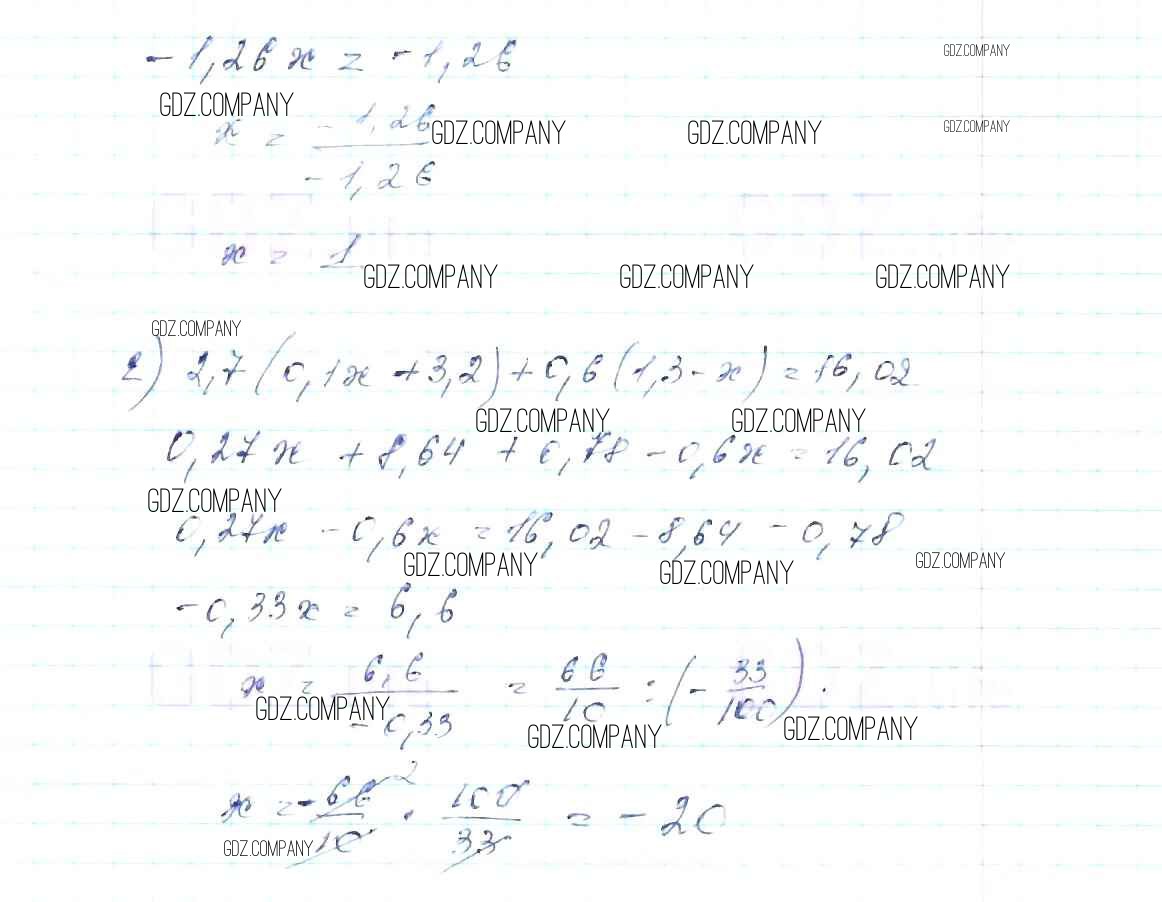 -1,26x = -1,26
GDZ.COMPANY
GDZ.COMPANY
x = -1,26 / -1,26
GDZ.COMPANY
GDZ.COMPANY
GDZ.COMPANY
x = 1
GDZ.COMPANY
GDZ.COMPANY
GDZ.COMPANY
GDZ.COMPANY
2) 2,7(0,1x + 3,2) + 0,6(1,3 - x) = 16,02
GDZ.COMPANY
GDZ.COMPANY
0,27x + 8,64 + 0,78 - 0,6x = 16,02
GDZ.COMPANY
0,27x - 0,6x = 16,02 - 8,64 - 0,78
GDZ.COMPANY
GDZ.COMPANY
GDZ.COMPANY
-0,33x = 6,6
x = 6,6 / -0,33 = 66/10 : (-33/100).
GDZ.COMPANY
GDZ.COMPANY
GDZ.COMPANY
x = -66/10 2 · 100/33 = -20
GDZ.COMPANY